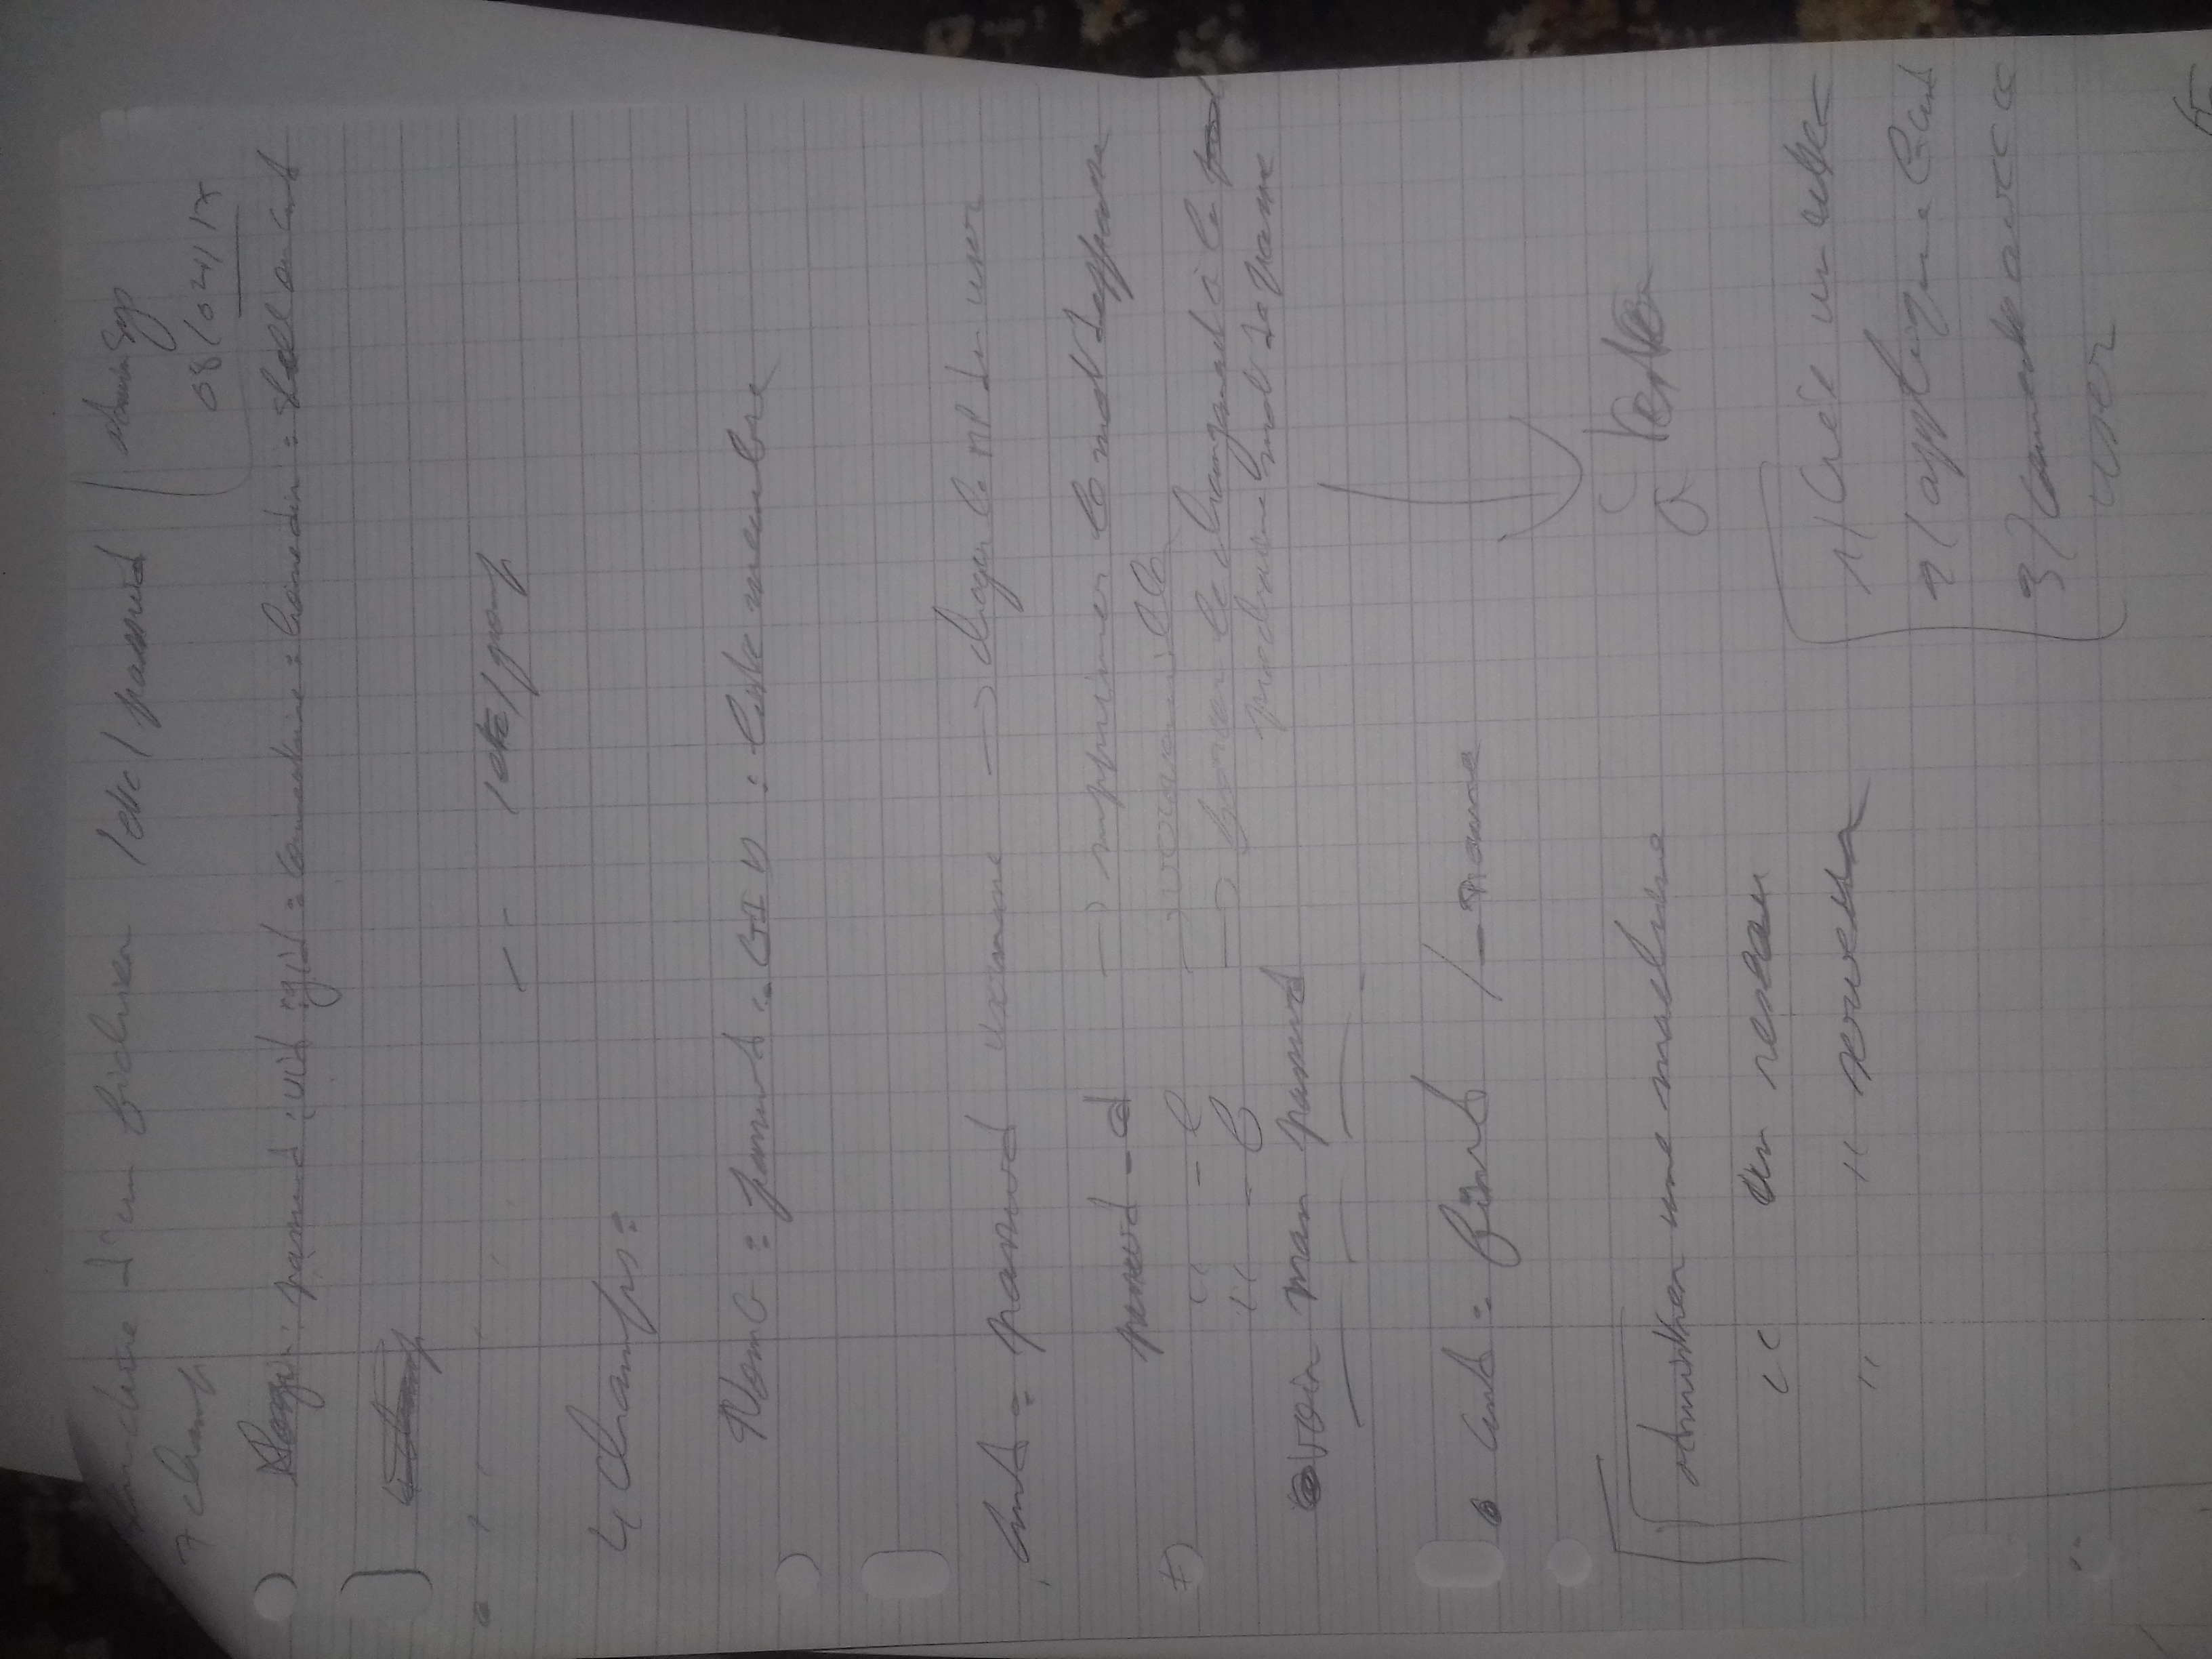 Structure d'un fichier /etc/passwd
Admin Sys
7 champ
08/04/17
login : passwd : uid : gid : commentaire : homedir : shell ou cmd
4 champ
" " " " -- /etc/group
4 champs :
Nom G : passwd : GID : liste membre
cmd : passwd username → chager le MP du user
passwd -d → supprimer le mot de passe
" - l → verrouiller
" - e → forcer le changement à la
prochaine mot de passe
voir man passwd
cmd : find / -name
à tester
administrer une machine
" un reseau
" " serveur
1) Crée un user
2) applique la cmd
3) connecte avec ce
user